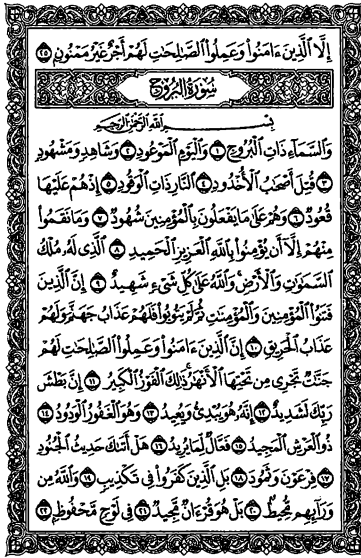 إِلَّا الَّذِينَ ءَامَنُوا۟ وَعَمِلُوا۟ الصَّالِحَاتِ لَهُمْ أَجْرٌ غَيْرُ مَمْنُونٍ ٢٥
سُورَةُ الْبُرُوجِ
بِسْمِ اللَّهِ الرَّحْمَٰنِ الرَّحِيمِ
وَالسَّمَاءِ ذَاتِ الْبُرُوجِ ١ وَالْيَوْمِ الْمَوْعُودِ ٢ وَشَاهِدٍ وَمَشْهُودٍ
٣ قُتِلَ أَصْحَابُ الْأُخْدُودِ ٤ النَّارِ ذَاتِ الْوَقُودِ ٥ إِذْ هُمْ عَلَيْهَا
قُعُودٌ ٦ وَهُمْ عَلَىٰ مَا يَفْعَلُونَ بِالْمُؤْمِنِينَ شُهُودٌ ٧ وَمَا نَقَمُوا۟
مِنْهُمْ إِلَّا أَن يُؤْمِنُوا۟ بِاللَّهِ الْعَزِيزِ الْحَمِيدِ ٨ الَّذِى لَهُۥ مُلْكُ
السَّمَٰوَٰتِ وَالْأَرْضِ ۚ وَاللَّهُ عَلَىٰ كُلِّ شَىْءٍ شَهِيدٌ ٩ إِنَّ الَّذِينَ
فَتَنُوا۟ الْمُؤْمِنِينَ وَالْمُؤْمِنَٰتِ ثُمَّ لَمْ يَتُوبُوا۟ فَلَهُمْ عَذَابُ جَهَنَّمَ وَلَهُمْ
عَذَابُ الْحَرِيقِ ١٠ إِنَّ الَّذِينَ ءَامَنُوا۟ وَعَمِلُوا۟ الصَّالِحَاتِ لَهُمْ
جَنَّٰتٌ تَجْرِى مِن تَحْتِهَا الْأَنْهَٰرُ ۚ ذَٰلِكَ الْفَوْزُ الْكَبِيرُ ١١ إِنَّ بَطْشَ
رَبِّكَ لَشَدِيدٌ ١٢ إِنَّهُۥ هُوَ يُبْدِئُ وَيُعِيدُ ١٣ وَهُوَ الْغَفُورُ الْوَدُودُ ١٤
ذُو الْعَرْشِ الْمَجِيدُ ١٥ فَعَّالٌ لِّمَا يُرِيدُ ١٦ هَلْ أَتَىٰكَ حَدِيثُ الْجُنُودِ
١٧ فِرْعَوْنَ وَثَمُودَ ١٨ بَلِ الَّذِينَ كَفَرُوا۟ فِى تَكْذِيبٍ ١٩ وَاللَّهُ مِن
وَرَائِهِم مُّحِيطٌ ٢٠ بَلْ هُوَ قُرْءَانٌ مَّجِيدٌ ٢١ فِى لَوْحٍ مَّحْفُوظٍ ٢٢